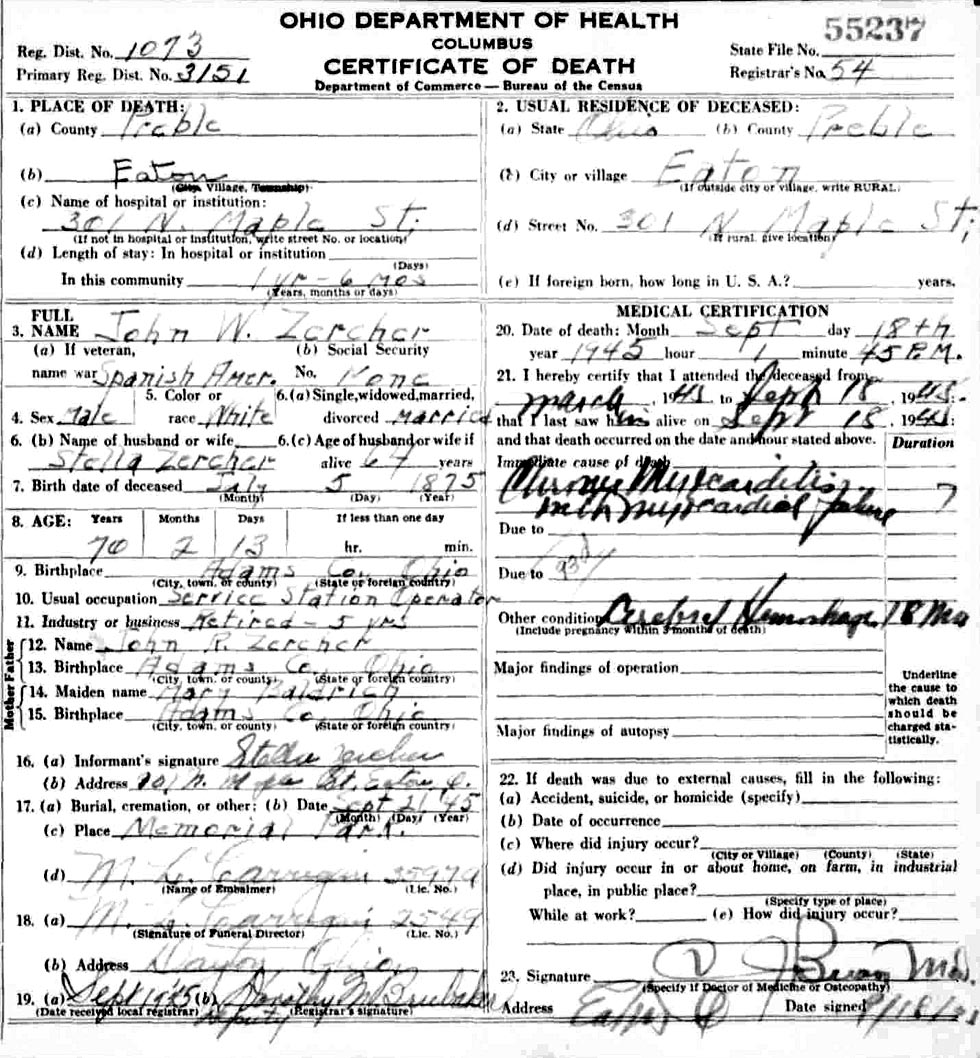 OHIO DEPARTMENT OF HEALTH
COLUMBUS
CERTIFICATE OF DEATH
Department of Commerce — Bureau of the Census
55237
Reg. Dist. No. 1073
Primary Reg. Dist. No. 3151
State File No.
Registrar's No. 54
1. PLACE OF DEATH:
(a) County Preble
(b) Eaton
(City, Village, Township)
(c) Name of hospital or institution:
301 N. Maple St;
(If not in hospital or institution, write street No. or location)
(d) Length of stay: In hospital or institution
(Days)
In this community 1 yr - 6 mos
(Years, months or days)
2. USUAL RESIDENCE OF DECEASED:
(a) State Ohio (b) County Preble
(c) City or village Eaton
(If outside city or village, write RURAL)
(d) Street No. 301 N. Maple St;
(If rural, give location)
(e) If foreign born, how long in U. S. A.? years.
3. FULL NAME John W. Zercher
(a) If veteran, name war Spanish Amer.
(b) Social Security No. None
4. Sex Male
5. Color or race White
6. (a) Single, widowed, married, divorced Married
6. (b) Name of husband or wife Stella Zercher
6. (c) Age of husband or wife if alive 64 years
7. Birth date of deceased July 5 1875
(Month) (Day) (Year)
8. AGE: Years Months Days If less than one day
70 2 13 hr. min.
9. Birthplace Adams Co., Ohio
(City, town, or county) (State or foreign country)
10. Usual occupation Service Station Operator
11. Industry or business Retired - 5 yrs
Father
12. Name John R. Zercher
13. Birthplace Adams Co., Ohio
(City, town, or county) (State or foreign country)
Mother
14. Maiden name Mary
15. Birthplace Adams Co., Ohio
(City, town, or county) (State or foreign country)
16. (a) Informant's signature Stella Zercher
(b) Address 301 N. Maple St. Eaton O.
17. (a) Burial, cremation, or other; (b) Date Sept 21 45
(Month) (Day) (Year)
(c) Place Memorial Park.
(d) M. L. 3597A
(Name of Embalmer) (Lic. No.)
18. (a) M. 2549
(Signature of Funeral Director) (Lic. No.)
(b) Address Dayton Ohio
19. (a) Sept (b) Dorothy M. Brubaker
(Date received local registrar) Deputy (Registrar's signature)
MEDICAL CERTIFICATION
20. Date of death: Month Sept day 18th
year 1945 hour 1 minute 45 P.M.
21. I hereby certify that I attended the deceased from
March, 1945 to Sept 18, 1945:
that I last saw him alive on Sept 18, 1945:
and that death occurred on the date and hour stated above.
Duration
Immediate cause of death
Chronic Myocarditis
with myocardial failure
Due to
Due to
Other condition Cerebral Hemorrhage 18 Mo
(Include pregnancy within 3 months of death)
Major findings of operation
Major findings of autopsy
Underline the cause to which death should be charged statistically.
22. If death was due to external causes, fill in the following:
(a) Accident, suicide, or homicide (specify)
(b) Date of occurrence
(c) Where did injury occur?
(City or Village) (County) (State)
(d) Did injury occur in or about home, on farm, in industrial
place, in public place?
(Specify type of place)
While at work? (e) How did injury occur?
23. Signature
(Specify if Doctor of Medicine or Osteopathy)
Address Eaton O Date signed 9/18/45